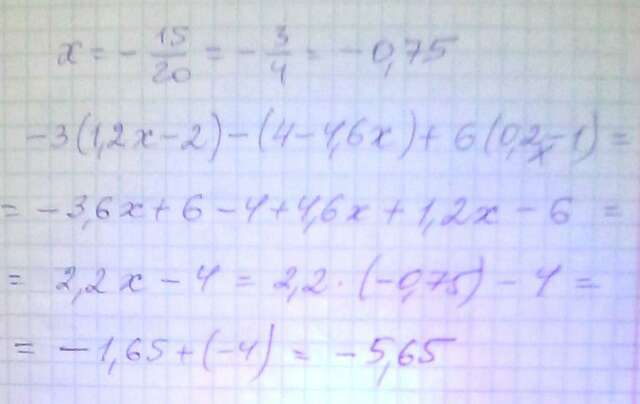 x = -15/20 = -3/4 = -0,75
-3(1,2x-2)-(4-4,6x)+6(0,2x-1)=
= -3,6x+6-4+4,6x+1,2x-6 =
= 2,2x-4 = 2,2·(-0,75)-4 =
= -1,65+(-4) = -5,65